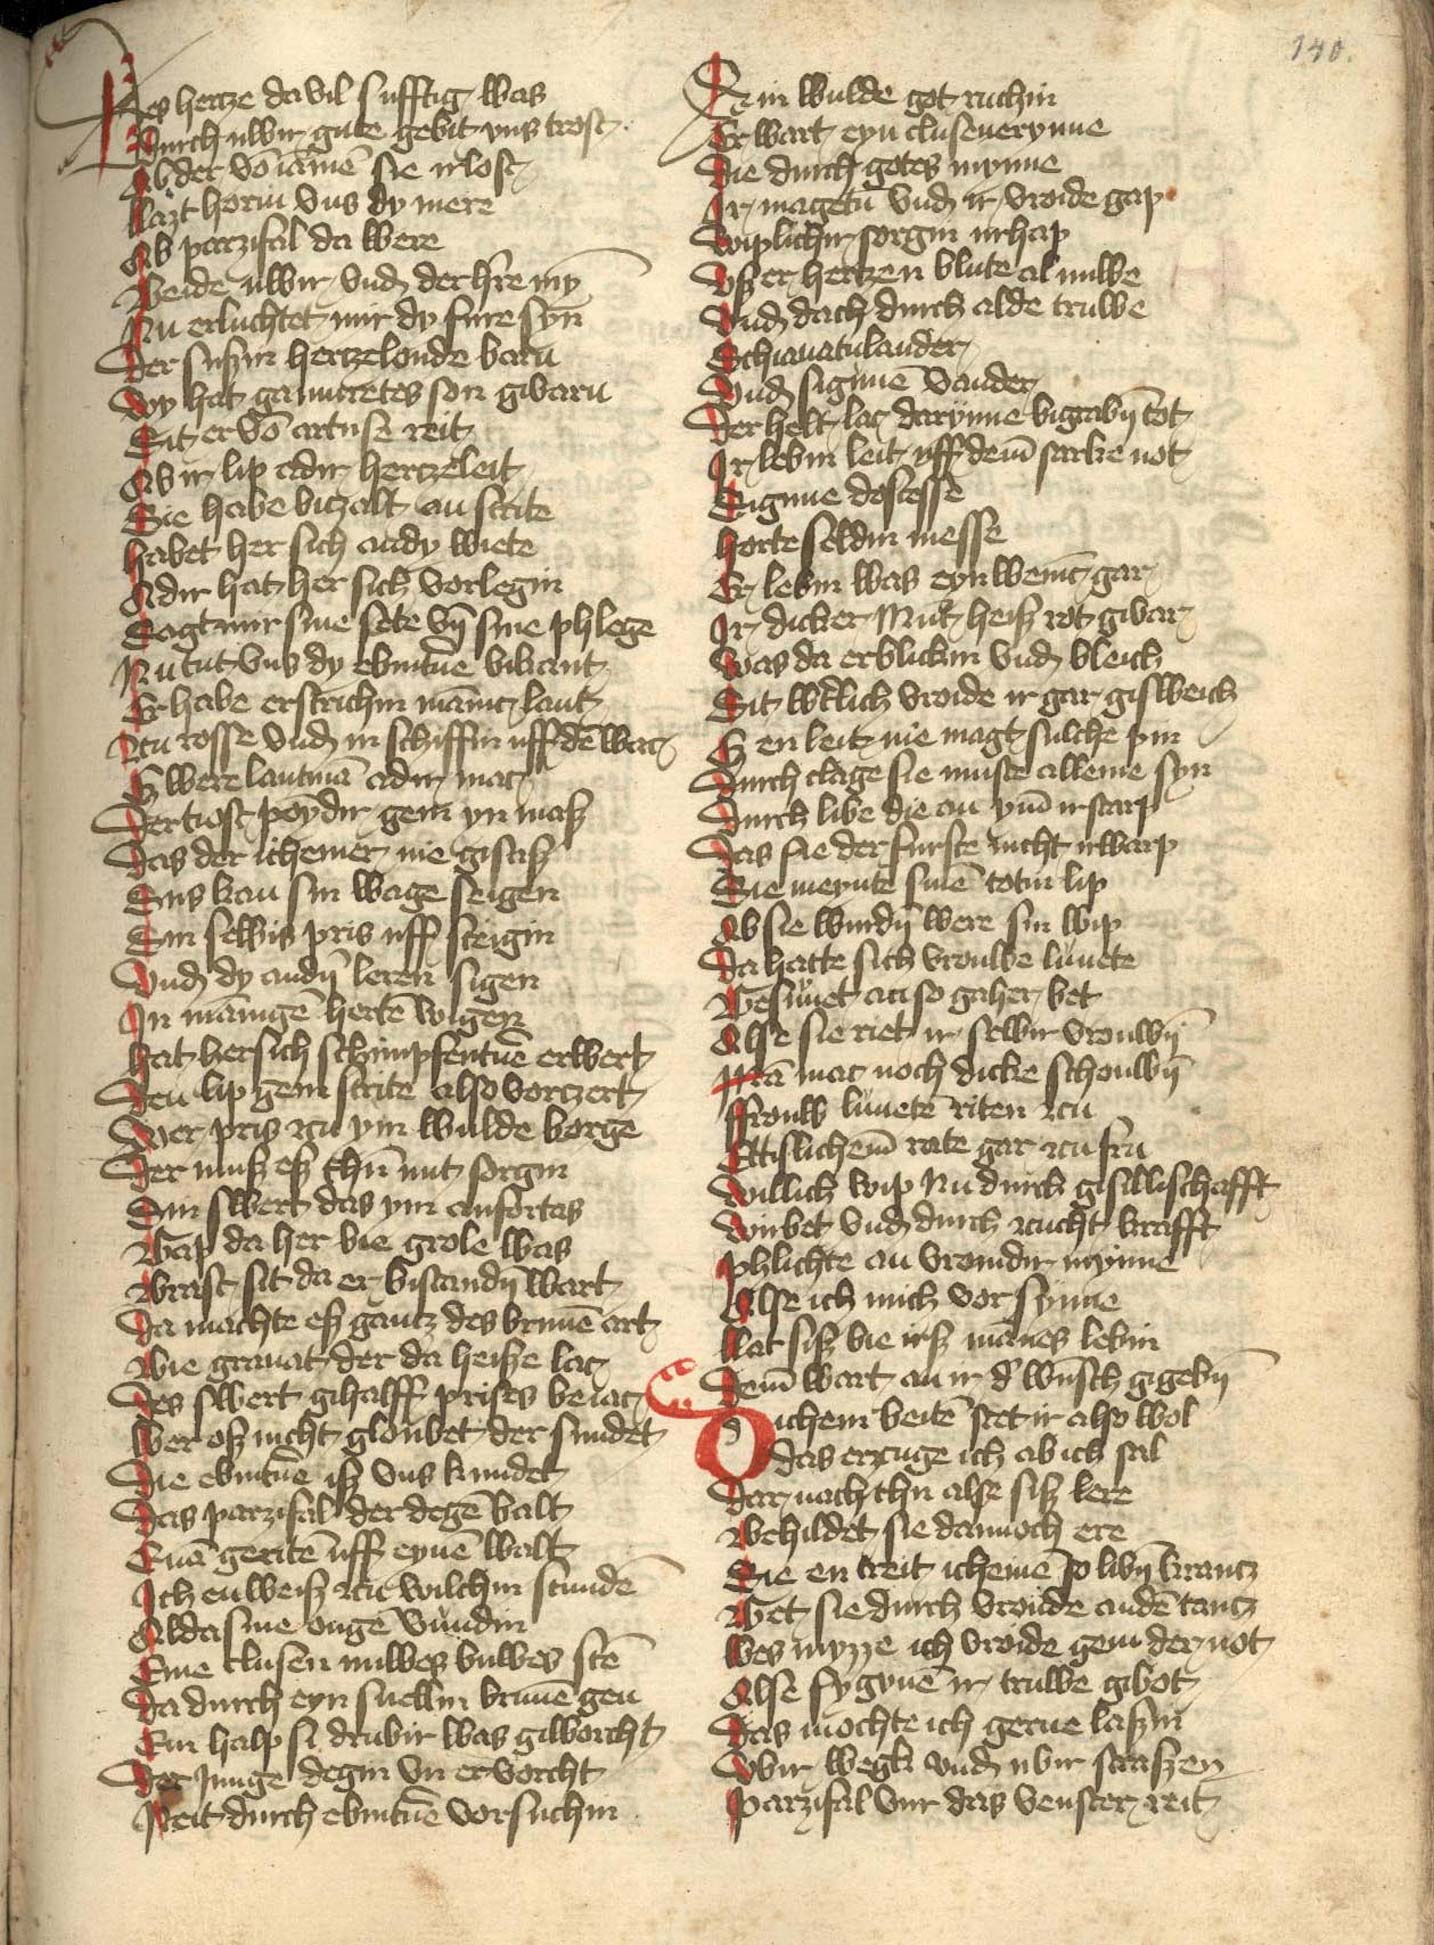 140.
Des hertze da vil sufftig was
Durch uwir gute gebit vns trost
Ab der vō iāmē sie irlost
Lazt horin vns dy mere
Ab parzifal da were
Beide uwir vnd der h're myͫ
Nu erluchtet mir dy fure syn
Der suszin hertzeloude barn
Wy hat gamuretes son gibarn
Sit er vō artuse reit
Ab ir lip adir hertzeleit
Sie habe bitzalt an strite
Habet her sich andy wiete
Adir hat her sich vorlegin
Sagt mir sine sete vn̄ sine phlege
Nu tut vns dy ebintuē bikant
Er habe erstrichin mānic lant
Zcu rosse vnd in schiffin uff dē wac
Es were lantmā adir mac
Der tiost poydir gein yn masz
Das der icheiner nie gisasz
Sus kan sin wage seigen
Sin selbis pris uff steigin
Vnd dy andn̄ leren sigen
In mānigē hertē wigen
Hat her sich schimpfentuē erwert
Den lip gein strite also vorczert
Wer pris zcu ym wulde borge
Der musz esz thūn mit sorgin
Sin swert das ym anfortas
Gap da her bie grole was
Brast sit da er bistandn̄ wart
Da machte esz gantz des brunē art
Bie granat der da heisze lac
Des swert gihalff prises beiac
Wer osz nicht gloubet der sundet
Die ebintuē isz vns kundet
Das parzifal der degē balt
Quā geritē uff eynē walt
Ich enweisz zcu wilchin stundē
Alda sine ougē vundin
Eine clusen nuwes buwes stē
Da durch eyn snellin brunē gen
Ein halp si drubir was giworcht
Der junge degin vn ervorcht
Reit durch ebintuē vorsuchin
Sin wulde got ruchin
Er wart eyn clusenerynne
Die durch gotes mynne
Ir magetū vnd ir vroide gap
Wiplichir sorgin urhap
Vszer hertzen blute al nuwe
Vnd dach durch alde truwe
Schianatulander
Vnd sigunē vander
Der helt lac darynne bigrabn̄ tot
Ir lebin leit uff demē starke not
Sigune doscesse
Horte seldin messe
Er lebin was eyn wenic gar
Ir dicker mūt heisz rot givar
Was da erblickin vnd bleich
Sit wērlich vroide ir gar gisweich
Es en leit nie magt sulche pin
Durch clage sie muste alleine syn
Durch libe die an ymē irstarp
Das sie der furste nicht irwarp
Sie meynte sinē totin lip
Ab sie wurdn̄ were sin wip
Da hatte sich vrouwe lunete
Gesumet an so gaher bet
Alse sie riet ir selbir vrouwn̄
Mā mac noch dicke schouwn̄
Frouw lunetē riten zcu
Ettislichemē rate gar zcu fru
Willich wip nu durch gisillischafft
Winbet vnd durch zcucht krafft
Phlichte an vromdir mynne
Alse ich mich vorsynne
Lat sisz bie irsz mānes lebin
Demē wart an ir d' wūsch gigebn̄
Sichein beitē stet ir also wol
das erzuge ich ab ich sal
Dar nach thu alse sisz lere
Behildet sie dannoch ere
Sie en treit icheinē so libn̄ krantz
Get sie durch vroide andē tantz
Wes myzze ich vroide gein der not
Alse sygynē ir truwe gibot
Das mochte ich gerne laszin
Vbir wegk vnd ubir straszen
Parzifal vur das venster reit